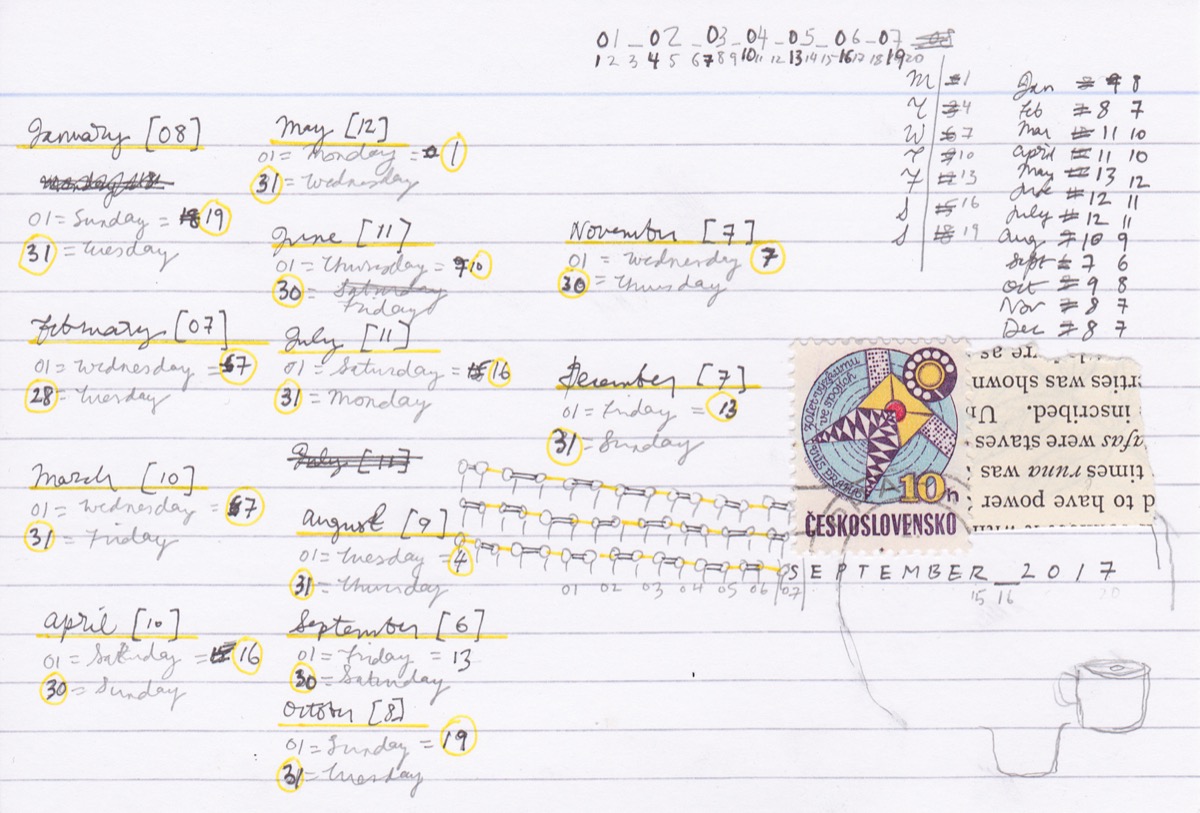 01 _ 02 _ 03 _ 04 _ 05 _ 06 _ 07
1 2 3 4 5 6 7 8 9 10 11 12 13 14 15 16 17 18 19 20
M 1
T 4
W 7
T 10
F 13
S 16
S 19
Jan 8
Feb 8 7
Mar 11 10
April 11 10
May 13 12
June 12 11
July 12 11
Aug 10 9
Sept 7 6
Oct 9 8
Nov 8 7
Dec 8 7
January [08]
01 = Sunday = 19
31 = Tuesday
February [07]
01 = Wednesday = 7
28 = Tuesday
March [10]
01 = Wednesday = 7
31 = Friday
April [10]
01 = Saturday = 16
30 = Sunday
May [12]
01 = Monday = 1
31 = Wednesday
June [11]
01 = Thursday = 10
30 = Saturday
Friday
July [11]
01 = Saturday = 16
31 = Monday
July [11]
August [9]
01 = Tuesday = 4
31 = Thursday
September [6]
01 = Friday = 13
30 = Saturday
October [8]
01 = Sunday = 19
31 = Tuesday
November [7]
01 = Wednesday 7
30 = Thursday
December [7]
01 = Friday = 13
31 = Sunday
01 02 03 04 05 06 07
30 let výzkumu
ve spojích
VÚS PRAHA
10h
ČESKOSLOVENSKO
d to have power
times runa was
afas were staves
inscribed. Un
erties was shown
re as
SEPTEMBER_2017
15 16 20